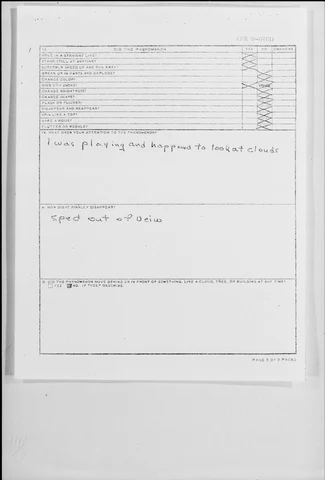 DID THE PHENOMENON
YES NO UNKNOWN
MOVE IN A STRAIGHT LINE?
STAND STILL AT ANYTIME?
SUDDENLY SPEED UP AND RUN AWAY?
BREAK UP IN PARTS AND EXPLODE?
CHANGE COLOR?
GIVE OFF SMOKE?
CHANGE BRIGHTNESS?
CHANGE SHAPE?
FLASH OR FLICKER?
DISAPPEAR AND REAPPEAR?
SPIN LIKE A TOP?
MAKE A NOISE?
FLUTTER OR WOBBLE?
WHAT DREW YOUR ATTENTION TO THE PHENOMENON?
I was playing and happend to look at clouds
HOW DID IT FINALLY DISAPPEAR?
sped out of veiw
DID THE PHENOMENON MOVE BEHIND OR IN FRONT OF SOMETHING, LIKE A CLOUD, TREE, OR BUILDING AT ANY TIME?
YES NO. IF "YES" DESCRIBE.